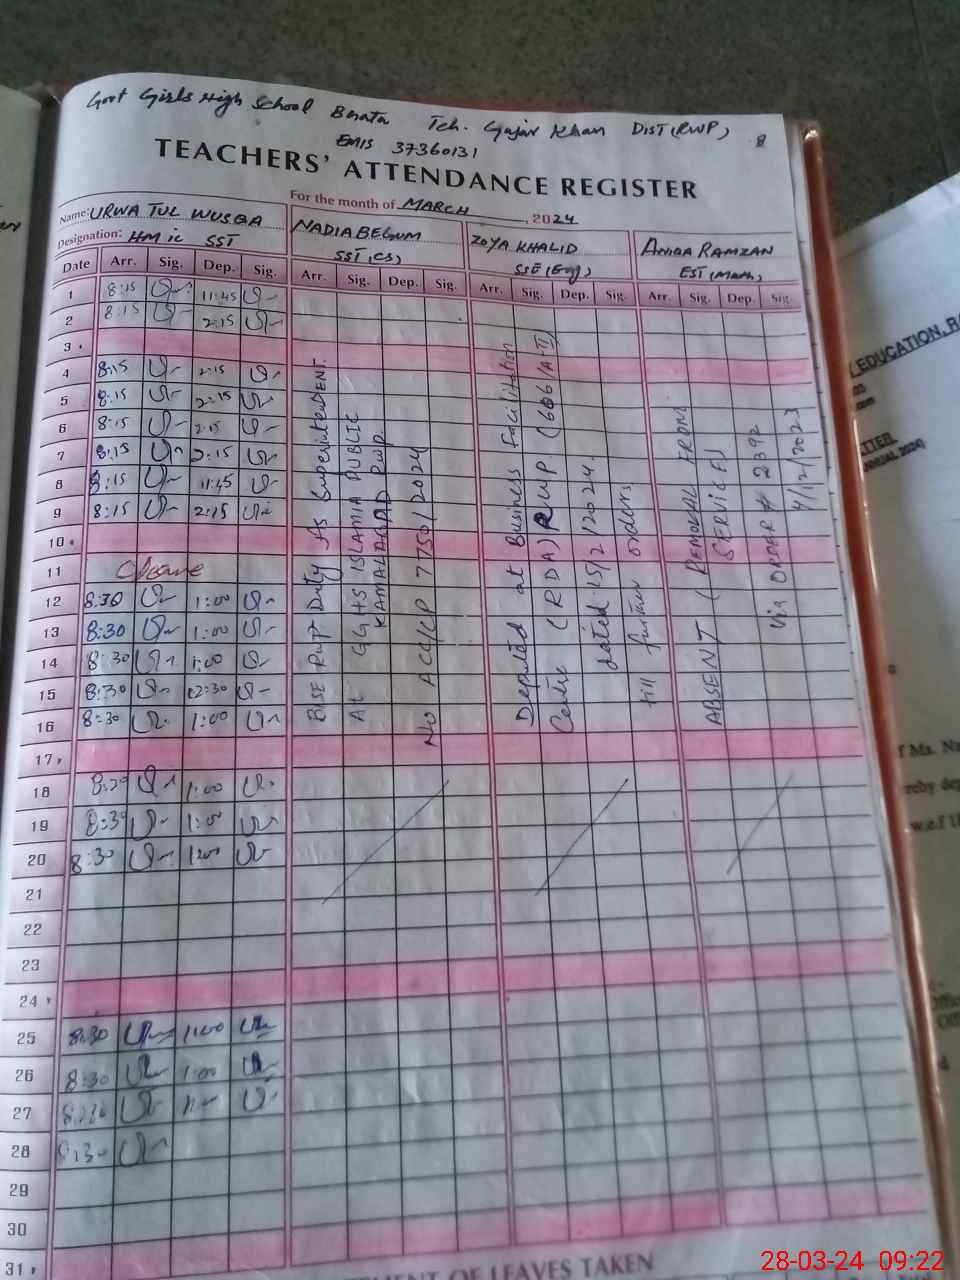 Govt Girls High School Bhata Teh. Gujar Khan DIST (RWP) 8
EMIS 37360131
TEACHERS' ATTENDANCE REGISTER
For the month of MARCH, 2024
Name: URWA TUL WUSQA NADIA BEGUM ZOYA KHALID ANIQA RAMZAN
Designation: HM ic SST SST (CS) SSE (Eng) EST (Math)
Date Arr. Sig. Dep. Sig. Arr. Sig. Dep. Sig. Arr. Sig. Dep. Sig. Arr. Sig. Dep. Sig.
1 8:15 11:45
2 8:15 2:15
3
4 8:15 2:15
5 8:15 2:15
6 8:15 2:15
7 8:15 2:15
8 8:15 11:45
9 8:15 2:15
10
11
12 8:30 1:00
13 8:30 1:00
14 8:30 1:00
15 8:30 12:30
16 8:30 1:00
17
18 1:00
19 1:00
20 8:30 1:00
21
22
23
24
25 8:30 1:00
26 8:30 1:00
27
28
29
30
31
BISE Rwp Duty As Superintendent
At GHS ISLAMIA PUBLIC
KAMALABAD Rwp.
No 7750/2024
Deputed at Business Facilitation
Centre (RDA) RWP. (606/A-II)
dated 15/2/2024.
till further orders
ABSENT (REMOVAL FROM
SERVICE)
Via ORDER # 2392
4/12/2023
OF LEAVES TAKEN
EDUCATION, RA
ANNUAL 2024)
f Ms. Na
reby dep
w.e.f 1
28-03-24 09:22